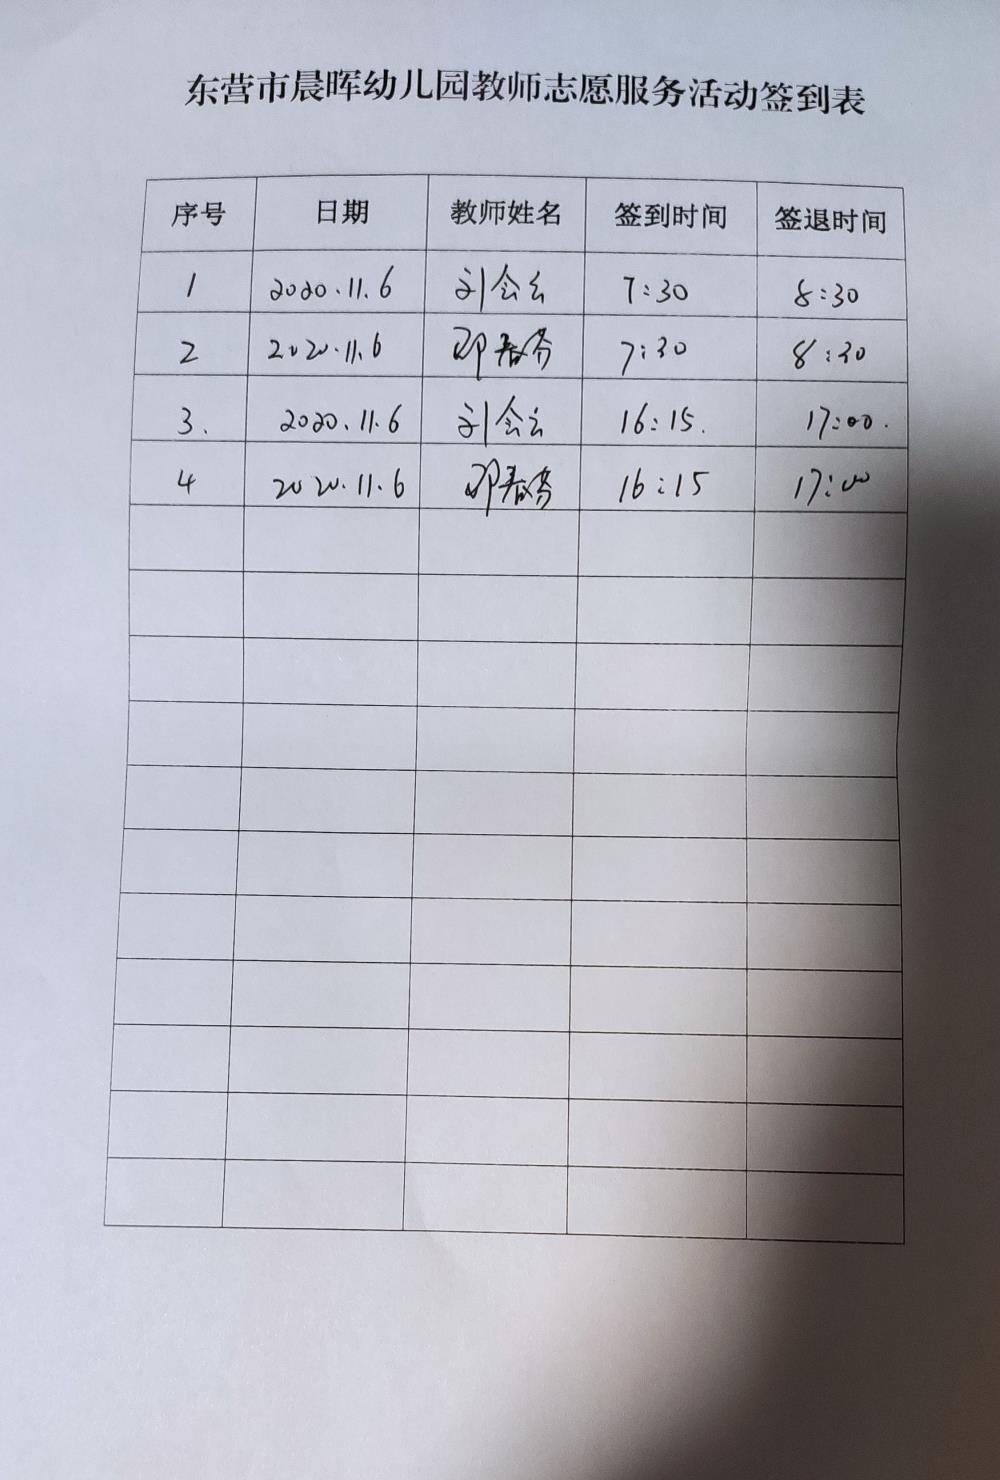 东营市晨晖幼儿园教师志愿服务活动签到表
序号 日期 教师姓名 签到时间 签退时间
1 2020.11.6 刘会云 7:30 8:30
2 2020.11.6 邓春芬 7:30 8:30
3. 2020.11.6 刘会云 16:15. 17:00.
4 2020.11.6 邓春芬 16:15 17:00